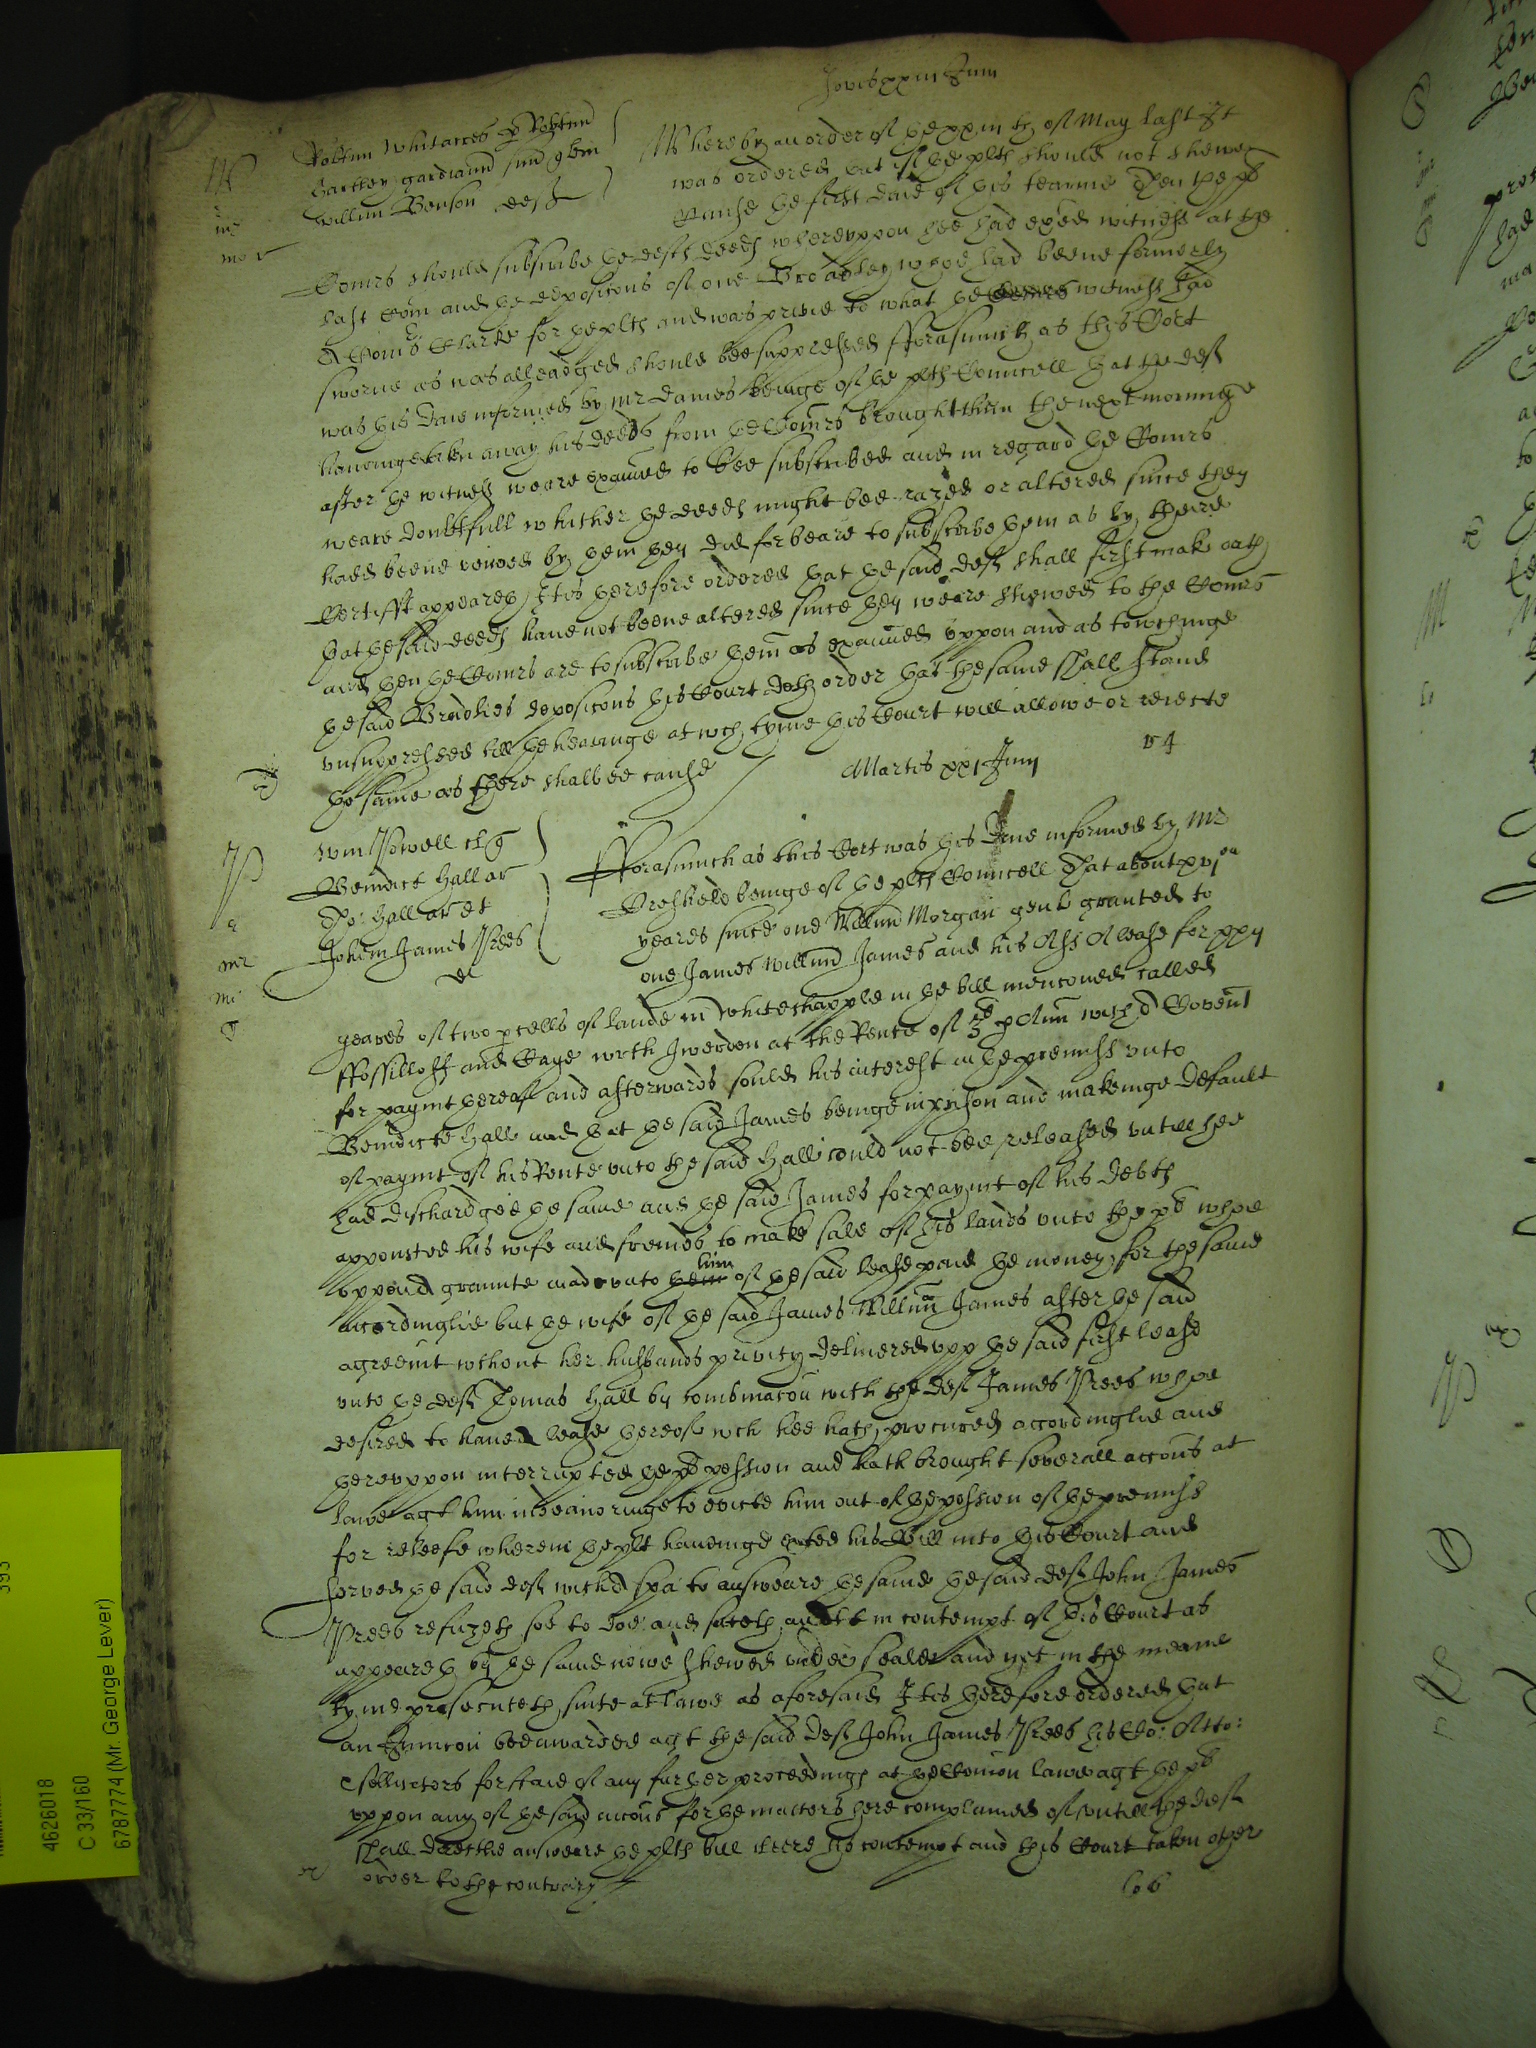 Jovis xxiii Junii
Robtun Whitacres p Robtum
Hartley gardianu suu quer
Willm Benson deft
Whereby an order of the xxiii th of May last It
was ordered that if the plts should not shewe
Cause the first daie of this tearme Then the
Comrs should subscribe the defts deeds whereuppon hee had exed witnesses at the
last Com and the deposicons of one Broadley whoe had beene formerly
A Comrs Clarke for the plts and was privie to what the witnesses had
sworne as was alleadged should bee suppressed fforasmuch as this Cort
was this daie informed by Mr Dames beinge of the plts Councell that the deft
havinge taken away his deeds from the Comrs brought them the next morninge
after the witnes weare examined to bee subscribed and in regard the Comrs
weare doubtfull whither the deeds might bee razed or altered since they
had beene viewed by them they did forbeare to subscribe them as by theire
Certifft appeareth It is therefore ordered that the said deft shall first make oath
that the said deeds have not beene altered since they weare shewed to the Comrs
and then the Comrs are to subscribe them as examined uppon and as towchinge
the said Bradleies deposicons this Court doth order that the same shall stand
unsuppressed till the hearinge at wch tyme this Court will allowe or rejecte
the same as there shalbee cause
Martis xxi Junii
Wm Powell cl q
Benedict Hall ar
Tho: Hall ar et
Johem James Prees
def
fforasmuch as this Cort was this daie informed by Mr
Breshield beinge of the plts Councell That about xvi en
yeares since one Willm Morgan gent granted to
one James Willm James and his Ass A lease for xxi
yeares of two pcells of lande in Whitechapple in the bill mencioned called
ffossilloss and Caye at the Rente of p Ann with A Covent
for paymt thereof and afterwards sould his interest in the premiss unto
Benedicte Hall and that the said James beinge in prison and makeinge default
of paymt of his Rente unto the said Hall could not bee released untill hee
had dischardged the same and the said James for paymt of his debts
appointed his wife and freinds to make sale of his lands unto the plt whoe
uppon A graunte made unto him of the said lease paid the money for the same
accordinglie but the wife of the said James Willm James after the said
agreemt wthout her husbands privity delivered upp the said first lease
unto the deft Thomas Hall by combinacon with the deft James Prees whoe
desired to have A lease thereof wch hee hath procured accordinglie and
thereuppon interrupted the plts possession and hath brought severall accons at
lawe agt him indeavoringe to evicte him out of the possion of the premiss
for releefe wherein the plt havinge exhted his Bill into this Court and
served the said deft with A spa to answeare the same the said deft John James
Prees refuzeth soe to doe and sitteth an att in contempt of this Court as
appeareth by the same nowe shewed under seale and yet in the meane
tyme prosecuteth suite at lawe as aforesaid It is therefore ordered that
an Iniuncon bee awarded agt the said deft John James Prees his Co: Atto:
& sollicitors for staie of any further proceedings at the Comon lawe agt the plt
uppon any of the said accons for the matters here complained of untill the deft
shall directlie answeare the plts bill cleere his contempt and this Court taken other
order to the contrary
4626018
C 33/160
6787774 (Mr. George Lever)